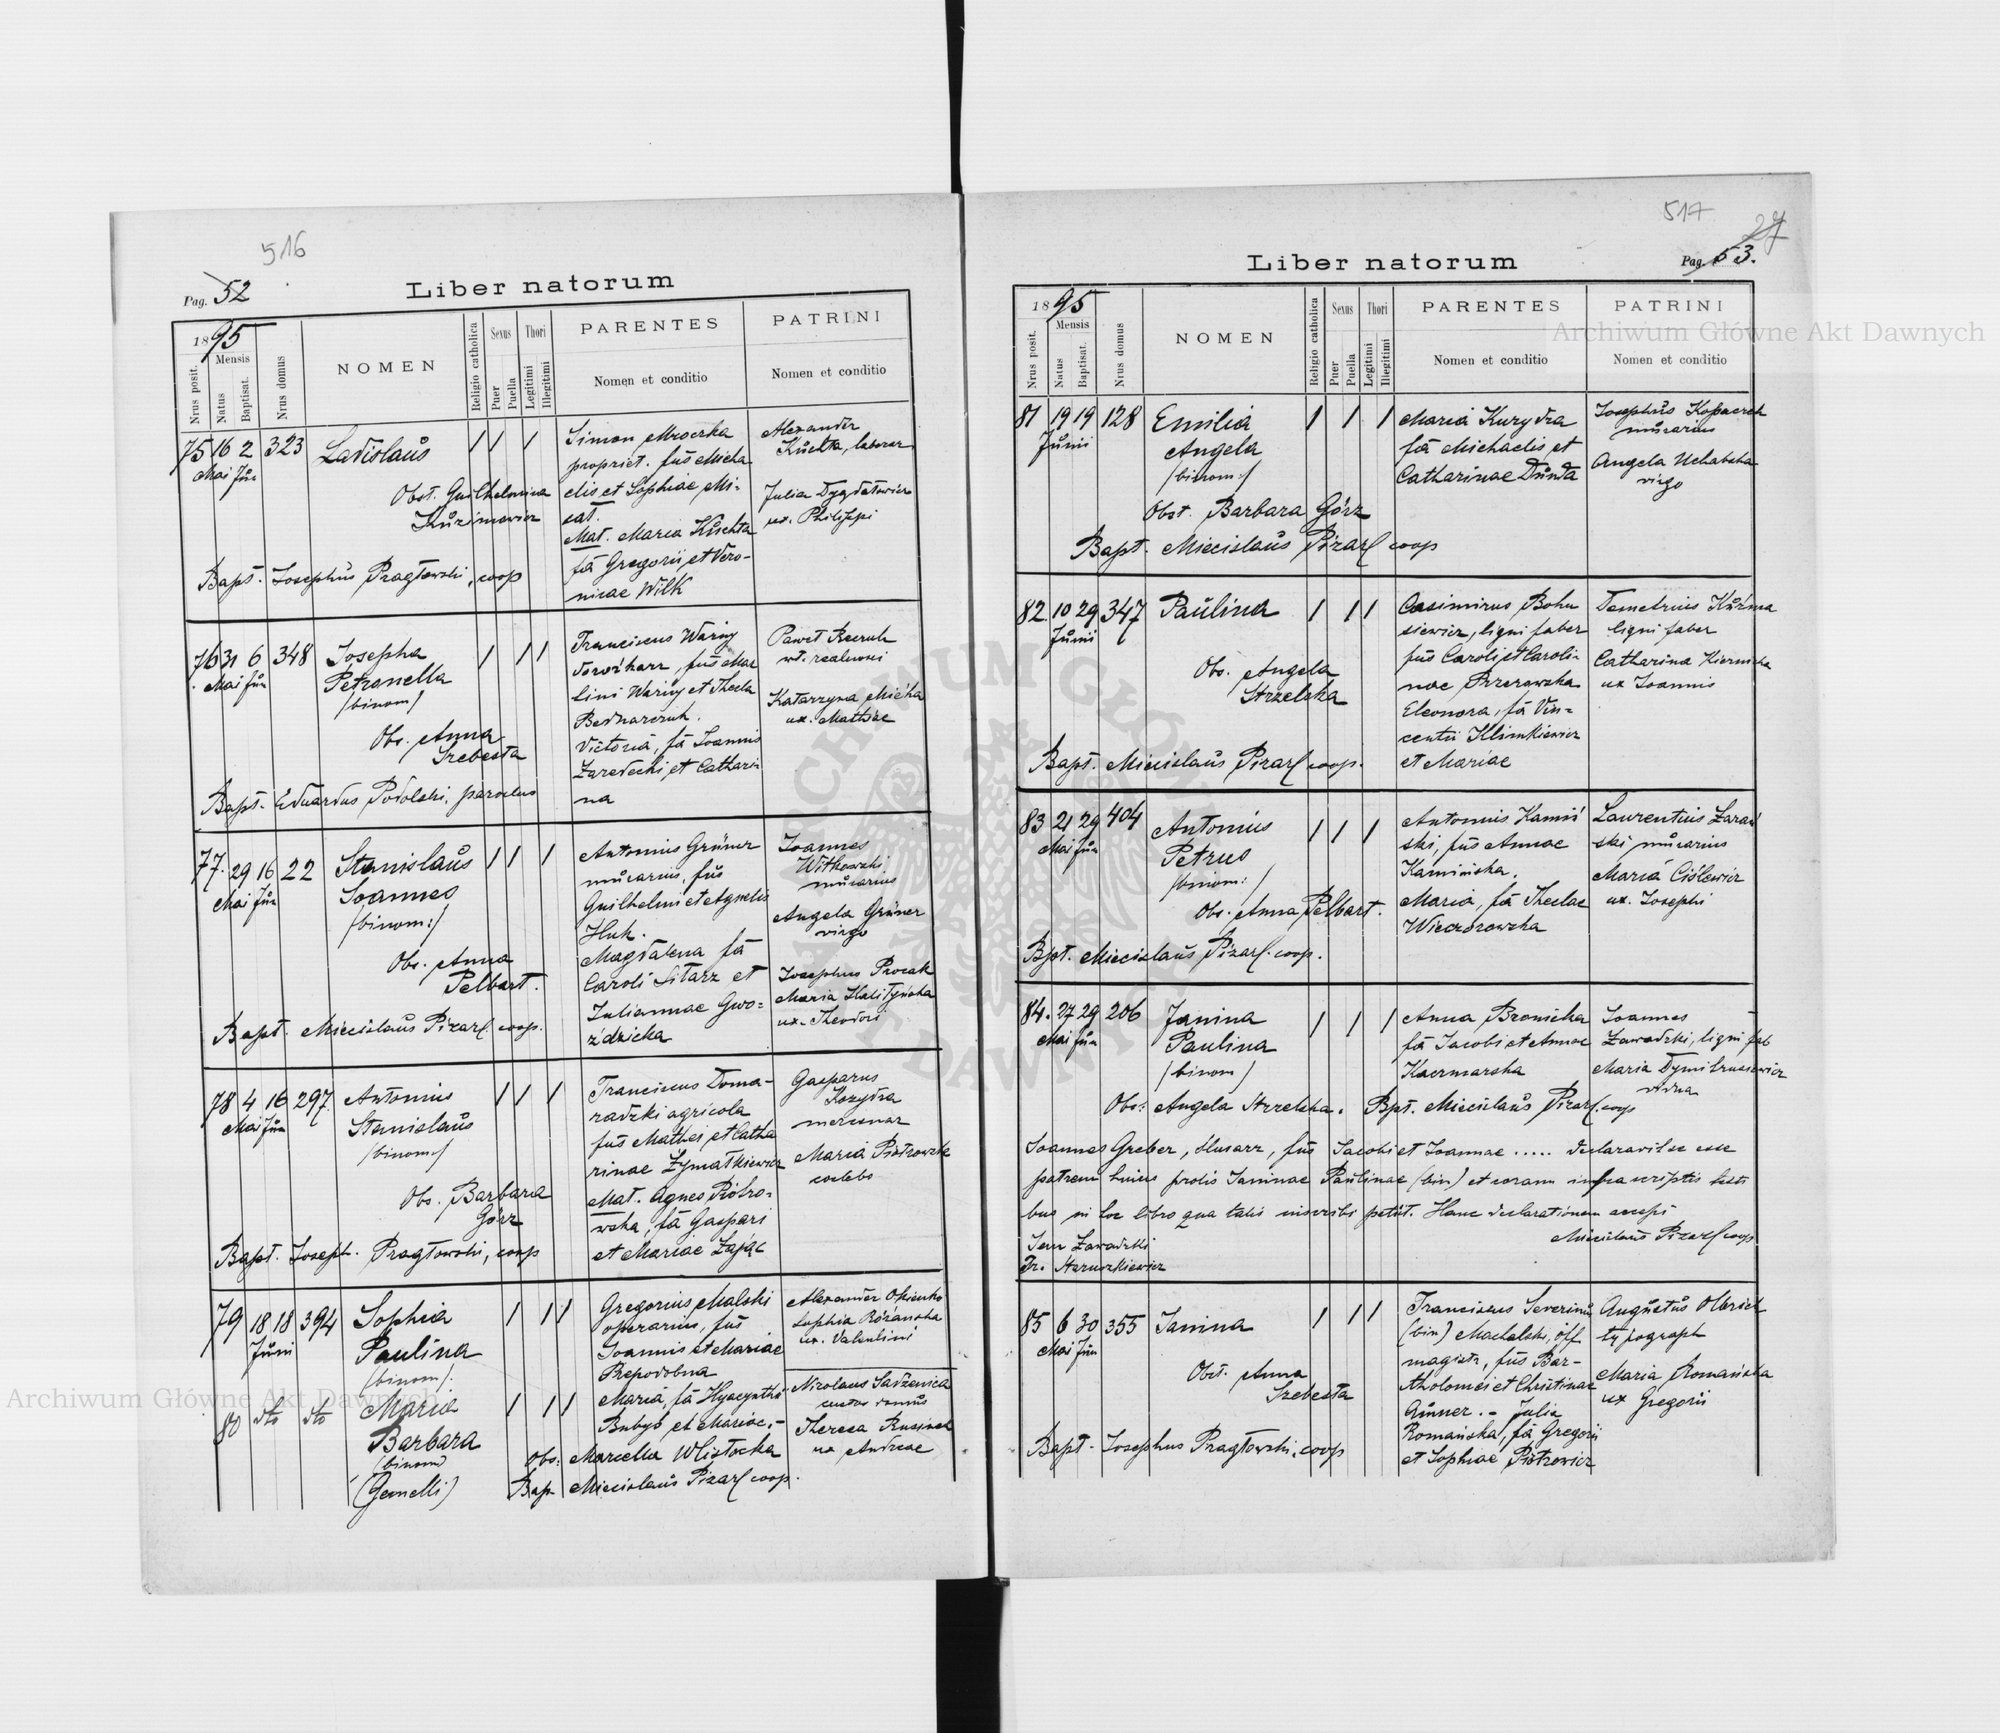 516
Pag. 52
Liber natorum
1895
Nrus posit.
Mensis
Natus
Baptisat.
Nrus domus
NOMEN
Religio catholica
Sexus
Puer
Puella
Thori
Legitimi
Illegitimi
PARENTES
Nomen et conditio
PATRINI
Nomen et conditio
75 16 2 323
Mai Jun
Ladislaus
Obst. Guilhelmina
Kuzimowicz
Bapt. Josephus Pragłowski, coop
Simon Mroczka
propriet. fus Micha
elis et Sophiae Mi-
sat.
Mat. Maria Kuchta
fa Gregorii et Vero-
nicae Wilk
Alexander
Kuchta, laborar
Julia Dygdałowicz
ux. Philippi
76 31 6 348
Mai Jun
Josepha
Petronella
/binom/
Obs. Anna
Szebesta
Bapt. Eduardus Podolski, parochus
Franciscus Waring
fus Mar
tini Waring et Thecla
Bednarczuk.
Victoria, fa Joannis
Zaredecki, et Cathari
na
Paweł
wł. realnosci
Katarzyna Micika
ux. Mathiae
77. 29 16 22
Mai Jun
Stanislaus
Joannes
/binom:/
Obs. Anna
Pelbart.
Bapt. Miecislaus Pizar coop.
Antonius Grüner
murarius, fus
Guilhelmi et Agnetis
Huk.
Magdalena fa
Caroli Sitarz et
Juliannae Gwo=
ździcka
Joannes
Witkowski
murarius
Angela Grüner
virgo
Josephus Procak
Maria Halityńska
ux. Theodori
78 4 16 297
Mai Jun
Antonius
Stanislaus
/binom:/
Obs. Barbara
Górz
Bapt. Joseph. Pragłowski, coop
Franciscus Doma-
radzki agricola
fus Mathei et Catha
rinae Zymałkiewicz
Mat. Agnes Piotro-
wska, fa Gaspari
et Mariae Zając
Gasparus
Kozydra
mercenar
Maria Piotrowska
coelebs
79 18 18 394
Juni
Sophia
Paulina
/binom/.
Gregorius Malski
operarius, fus
Joannis et Mariae
Bepodobna
Alexander Okienko
Sophia Różańska
ux. Valentini
80 dto dto
Maria
Barbara
(binom)
(Gemelli)
Maria, fa Hyacynthi
Bubyś et Mariae.-
Obs: Marcella Wlisłocka
Bap. Miecislaus Pizar coop.
Nicolaus Sadzenica
custos domus
Theresa Rusinek
ux Andreae
517
27
Liber natorum
Pag. 53.
1895
Nrus posit.
Mensis
Natus
Baptisat.
Nrus domus
NOMEN
Religio catholica
Sexus
Puer
Puella
Thori
Legitimi
Illegitimi
PARENTES
Nomen et conditio
PATRINI
Nomen et conditio
81 19 19 128
Juni
Emilia
Angela
/binom:/
Obst. Barbara Górz
Bapt. Miecislaus Pizar coop
Maria Kuzydra
fa Michaelis et
Catharinae Dunda
Josephus Kopaczek
murarius
Angela Uchabska
virgo
82. 10 29 347
Junii
Paulina
Obs. Angela
Strzelska
Bapt. Miecislaus Pizar coop.
Casimirus Bohu
siewicz, ligni faber
fus Caroli et Caroli-
nae Przezowska
Eleonora, fa Vin=
centii Klimkiewicz
et Mariae
Demetrius Kuźma
ligni faber
Catharina Kiernicka
ux Joannis
83 21 29 404
Mai Jun
Antonius
Petrus
/binom:/
Obs. Anna Pelbart.
Bpt. Miecislaus Pizar. coop.
Antonius Kamiń
ski, fus Annae
Kamińska.
Maria, fa Theclae
Wieczorowska
Laurentius Zarań
ski murarius
Maria Ciślewicz
ux. Josephi
84. 27 29 206
Mai Jun
Janina
Paulina
/binom/
Obs: Angela Strzelska. Bpt. Miecislaus Pizar. coop
Anna Bronicka
fa Jacobi et Annae
Kaczmarska
Joannes
Zawadzki, ligni fab
Maria Dymitrusiewicz
vidua
Joannes Greber, ślusarz, fus Jacobi et Joannae ..... declaravit se esse
patrem huius prolis Janinae Paulinae (bin) et coram infrascriptis testi
bus in hoc libro qua talis inscribi petiit. Hanc declarationem accepi
Miecislaus Pizar coop
Jan Zawadzki
Fr. Staruszkiewicz
85 6 30 355
Mai Jun
Janina
Obst. Anna
Szebesta
Bapt. Josephus Pragłowski, coop
Franciscus Severinus
(bin) Machalski, off.
magistr, fus Bar-
tholomei et Christinae
Rinner. - Julia
Romańska, fa Gregorii
et Sophiae Piotrowicz
Augustus Olbrich
typograph
Maria Romańska
ux Gregorii
Archiwum Główne Akt Dawnych
Archiwum Główne Akt Dawnych
ARCHIWUM GŁÓWNE AKT DAWNYCH